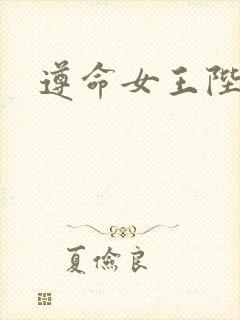 遵命女王陛
夏俭良